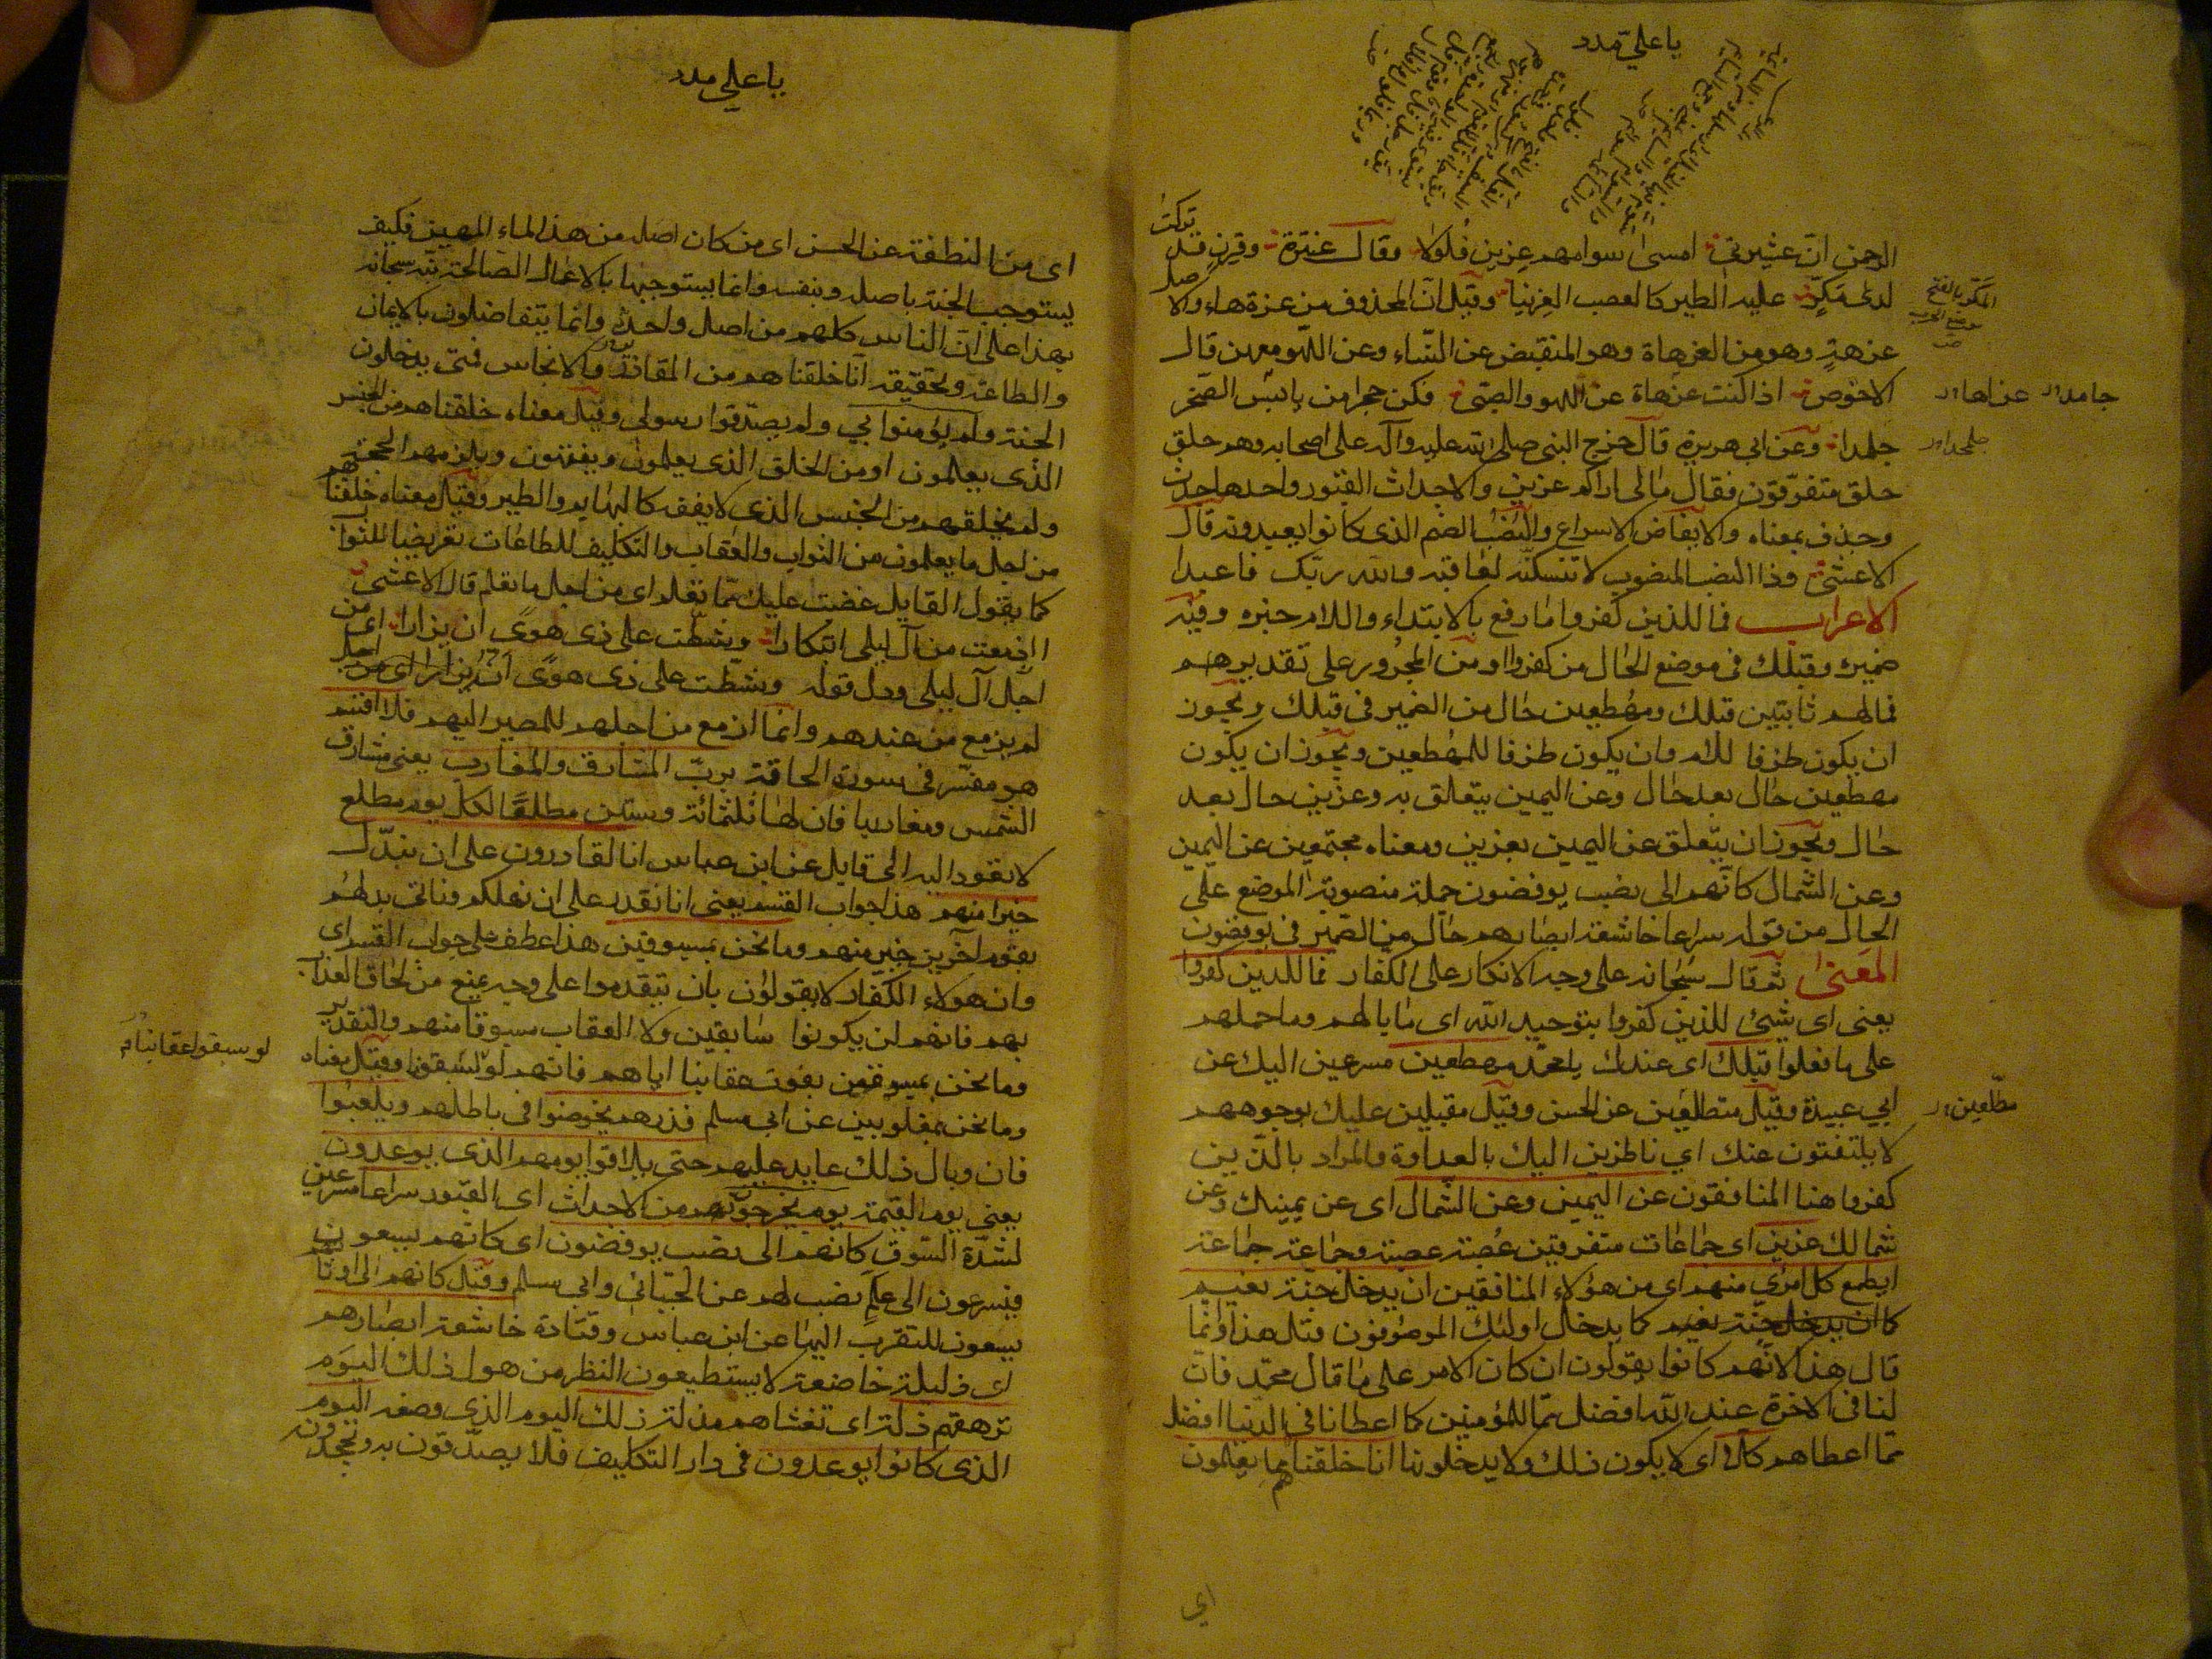 يا علي مدد
الرحمن انّ عشيرتي امسى سوامهم عزين فلولا وقال عنترة وقرن قد تركت
لدى مكرّ عليه الطير كالعصب العزينا وقيل انّ المحذوف من عزة هاء والاصل
عزهة وهو من العزهاة وهو المنقبض عن النساء وعن اللهو معهن قال
الاحوص اذا كنت عزهاة عن اللهو والصبى فكن حجرا من يابس الصخر
جلمدا وعن ابي هريرة قال خرج النبي صلى الله عليه وآله على اصحابه وهم حلق
حلق متفرّقون فقال مالى اراكم عزين والاجداث القبور واحدها جدث
وجذف بمعناه والايفاض الاسراع والنصب الصنم الذي كانوا يعبدونه قال
الاعشى وذا النصب المنصوب لا تنسكنّه لعاقبة والله ربّك فاعبدا
الاعراب فما للذين كفروا ما رفع بالابتداء واللام خبره وفيه
ضميره وقبلك في موضع الحال من كفروا او من المجرور على تقدير هم
فمالهم ثابتين قبلك ومهطعين حال من الضمير في قبلك ويجوز
ان يكون ظرفا للام وان يكون ظرفا للمهطعين ويجوز ان يكون
مهطعين حال بعد حال وعن اليمين يتعلق به وعزين حال بعد
حال ويجوز ان يتعلق عن اليمين بعزين ومعناه مجتمعين عن اليمين
وعن الشمال كانهم الى نصب يوفضون جملة منصوبة الموضع على
الحال من قوله سراعا خاشعة ابصارهم حال من الضمير في يوفضون
المعنى ثم قال سبحانه على وجه الانكار على الكفار فما للذين كفروا
يعني اي شيء للذين كفروا بتوحيد الله اي ما بالهم وما حملهم
على ما فعلوا قبلك اي عندك يا محمد مهطعين مسرعين اليك عن
ابي عبيدة وقيل متطلعين عن الحسن وقيل مقبلين عليك بوجوههم
لا يلتفتون عنك اي ناظرين اليك بالعداوة والمراد بالذين
كفروا هنا المنافقون عن اليمين وعن الشمال اى عن يمينك وعن
شمالك عزين اى جماعات متفرقين عصبة عصبة وجماعة جماعة
ايطمع كل امرئ منهم اى من هؤلاء المنافقين ان يدخل جنّة نعيم
كما يدخل اولئك الموصوفون قبل هذا وانّما
قال هذا لانّهم كانوا يقولون ان كان الامر على ما قال محمّد فانّ
لنا في الاخرة عند الله افضل ممّا للمؤمنين كما اعطانا في الدنيا افضل
ممّا اعطاهم كلّا اى لا يكون ذلك ولا يدخلونها انا خلقناهم مما يعلمون
المكرّ بالفتح موضع الحرب
جامد
جلمدا
مطّلعين
اي
يا علي مدد
اى من النطفة عن الحسن اى من كان اصله من هذا الماء المهين فكيف
يستوجب الجنة باصله وبنفسه وانما يستوجبها بالاعمال الصالحة نبّه سبحانه
بهذا على انّ الناس كلهم من اصل واحد وانّما يتفاضلون بالايمان
والطاعة وتحقيقه انّا خلقناهم من المقاذر والانجاس فمتى يدخلون
الجنة ولم يؤمنوا بي ولم يصدّقوا رسولى وقيل معناه خلقناهم من الجنس
الذى يعلمون او من الخلق الذى يعلمون ويفقهون ويلزمهم الحجة
ولم يخلقهم من الجنس الذى لا يفقه كالبهايم والطير وقيل معناه خلقناهم
من اجل ما يعلمون من الثواب والعقاب والتكليف للطاعات تعريضا للثواب
كما يقول القايل غضبت عليك ممّا تعلم اى من اجل ما تعلم قال الاعشى
اازمعت من آل ليلى ابتكارا وشطّت على ذى هوى ان يزارا اى من
اجل آل ليلى ودل قوله وشطّت على ذى هوى ان يزارا على انه
لم يزمع من عندهم وانما ازمع من اجلهم للمصير اليهم فلا اقسم
هو مفسّر فى سورة الحاقة بربّ المشارق والمغارب يعنى مشارق
الشمس ومغاربها فان لها ثلثمائة وستين مطلعًا لكل يوم مطلع
لا يعود اليه الى قابل عن ابن عباس انا لقادرون على ان نبدّل
خيرا منهم هذا جواب القسم يعنى انا نقدر على ان نهلكهم وناتى بدلهم
بقوم آخرين خير منهم وما نحن بمسبوقين هذا عطف على جواب القسم اى
وان هولاء الكفّار لا يفوتون بان يتقدموا على وجه يمنع من لحاق العذاب
بهم فانهم لن يكونوا سابقين ولا العقاب مسبوقا منهم والتقدير
وما نحن بمسبوقين بفوت عقابنا اياهم فانهم لو سبقونا وقيل معناه
وما نحن بمغلوبين عن ابى مسلم فذرهم يخوضوا فى باطلهم ويلعبوا
فان وبال ذلك عايد عليهم حتى يلاقوا يومهم الذى يوعدون
يعنى يوم القيمة يوم يخرجون من الاجداث اى القبور سراعا مسرعين
لشدّة السّوق كانهم الى نصب يوفضون اى كانهم يسعون
فيسرعون الى علم نصب لهم عن الجبّائى وابى مسلم وقيل كانهم الى اوثانهم
يسعون للتقرب اليها عن ابن عباس وقتادة خاشعة ابصارهم
اى ذليلة خاضعة لا يستطيعون النظر من هول ذلك اليوم
ترهقهم ذلة اى تغشاهم مذلة ذلك اليوم الذى وصفه اليوم
الذى كانوا يوعدون فى دار التكليف فلا يصدّقون به ويجحدونه
لو سبقوا عقابنا